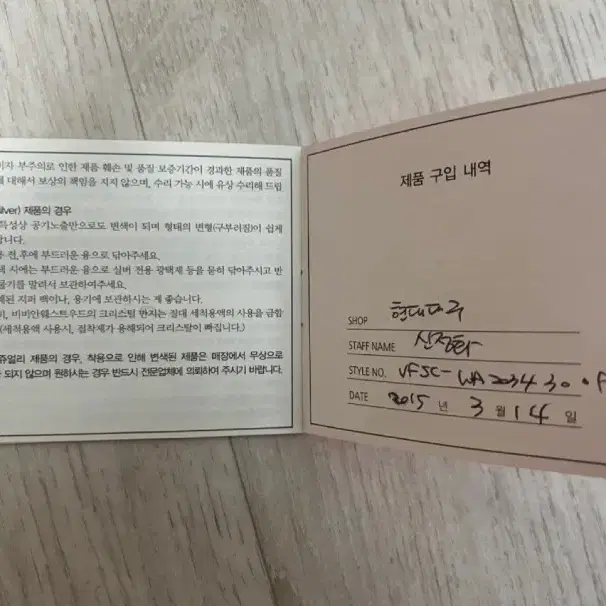 비자 부주의로 인한 제품 훼손 및 품질 보증기간이 경과한 제품의 품질
에 대해서 보상의 책임을 지지 않으며, 수리 가능 시에 유상 수리해 드림
lver) 제품의 경우
특성상 공기노출만으로도 변색이 되며 형태의 변형(구부러짐)이 쉽게
합니다.
용 전,후에 부드러운 융으로 닦아주세요.
색 시에는 부드러운 융으로 실버 전용 광택제 등을 묻혀 닦아주시고 반
물기를 말려서 보관하여주세요.
폐된 지퍼 백이나, 용기에 보관하시는 게 좋습니다.
비비안웨스트우드의 크리스털 반지는 절대 세척용액의 사용을 금합
(세척용액 사용시, 접착제가 용해되어 크리스탈이 빠집니다.)
쥬얼리 제품의 경우, 착용으로 인해 변색된 제품은 매장에서 무상으로
되지 않으며 원하시는 경우 반드시 전문업체에 의뢰하여 주시기 바랍니다.
제품 구입 내역
SHOP 현대대구
STAFF NAME 신정화
STYLE NO. VFSC-WA203430
DATE 2015 년 3 월 14 일